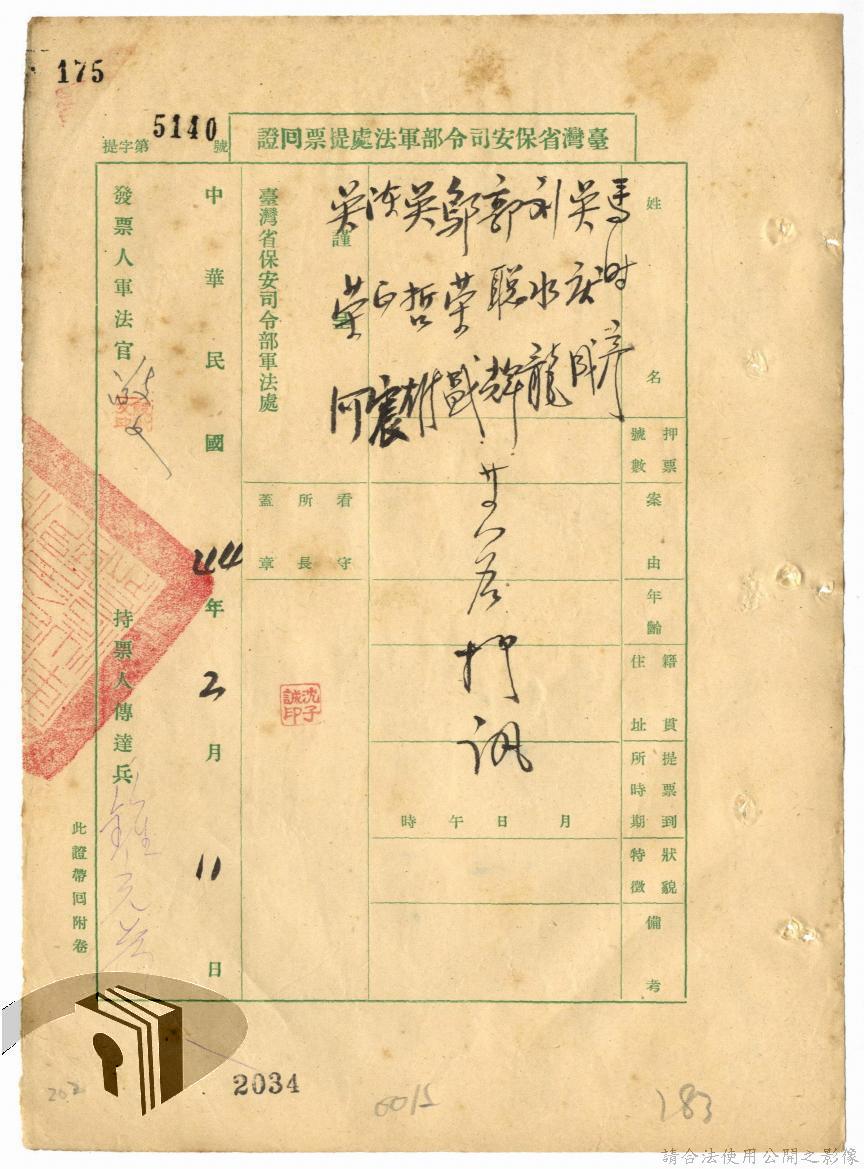 175
提字第5140號
臺灣省保安司令部軍法處提票回證
姓名
押票號數
案由
年齡
籍貫住址
提票到所時期
狀貌特徵
備考
馬時彥
吳庆成
刘水龍
郭聪輝
鄔荣盛
吳哲雄
陈正宸
吳荣河
廿八名押讯
月 日 午 時
謹呈
臺灣省保安司令部軍法處
看守所長蓋章
沈子誠印
中華民國44年2月11日
發票人軍法官
持票人傳達兵
此證帶回附卷
2034
202
0015
183
請合法使用公開之影像